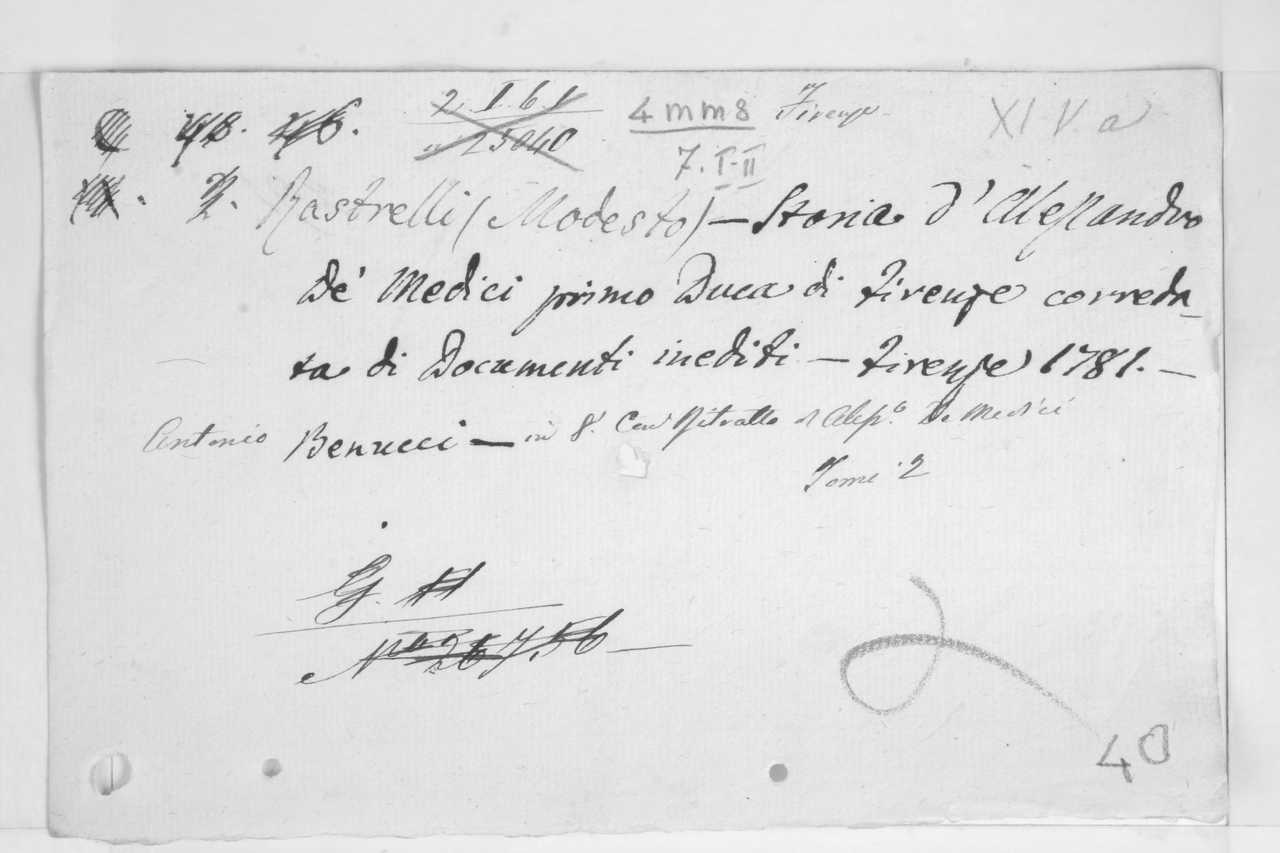 2. I. 6. 1
25040
4 mm 8 Firenze
7. I-II
XIV a
2. Rastrelli (Modesto) — Storia d'Alessandro
de' Medici primo Duca di Firenze correda-
ta di Documenti inediti — Firenze 1781. —
Antonio Benucci — in 8.° Con Ritratto d'Aless.° De Medici
Tomi 2
G.
40